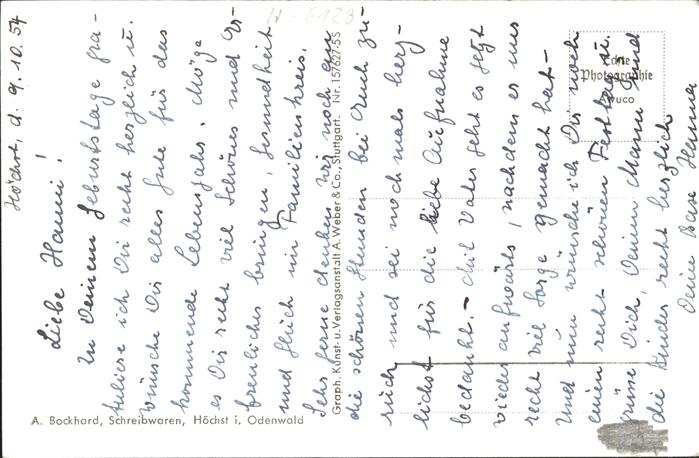 Höchst, d. 9.10.54
Liebe Hanni!
Zu Deinem Geburtstage gra-
tuliere ich Dir recht herzlich u.
wünsche Dir alles Gute für das
kommende Lebensjahr. Möge
es Dir recht viel Schönes und Er-
freuliches bringen, Gesundheit
und Glück im Familienkreis.
Sehr gerne denken wir noch an
die schönen Stunden bei Euch zu-
rück und sei nochmals herz-
lichst für die liebe Aufnahme
bedankt. – Mit Vater geht es jetzt
wieder aufwärts, nachdem er uns
recht viel Sorge gemacht hat –
Und nun wünsche ich Dir noch
einen recht schönen Festtag u.
grüsse Dich, Deinen Mann und
die Kinder recht herzlich
Deine Base
W-6123
Graph. Kunst- u. Verlagsanstalt A. Weber & Co., Stuttgart. Nr. 157627-5S
Echte
Photographie
Awuco
A. Bockhard, Schreibwaren, Höchst i. Odenwald